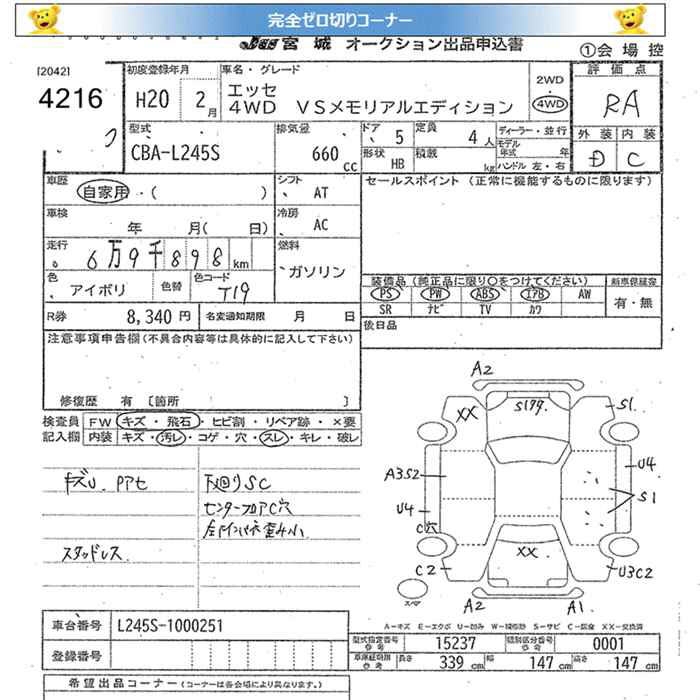 完全ゼロ切りコーナー
JU宮城 オークション出品申込書 ①会場控
[2042]
4216
初度登録年月 H20 2月
車名・グレード エッセ 4WD VSメモリアルエディション
2WD 4WD
評価点 RA
型式 CBA-L245S
排気量 660 cc
ドア 5
形状 HB
定員 4人
積載 kg
ディーラー・並行
モデル年式 年
ハンドル 左・右
外装 内装
D C
車歴 自家用・( )
シフト AT
セールスポイント (正常に機能するものに限ります)
車検 年 月( 日)
冷房 AC
走行 6万9千898km
燃料 ガソリン
色 アイボリ 色替
色コード T19
装備品(純正品に限り○をつけてください) 新車保証書
PS PW ABS エアB AW 有・無
SR ナビ TV カワ
R券 8,340円 名変通知期限 月 日
後日品
注意事項申告欄(不具合内容等は具体的に記入して下さい)
修復歴 有 [箇所 ]
検査員 FW キズ・飛石・ヒビ割・リペア跡・×要
記入欄 内装 キズ・汚レ・コゲ・穴・スレ・キレ・破レ
キズU. Pアセ
スタッドレス
下廻りSC
センターフロアC穴
左Fインパネ歪み小
A2
XX
S1
A3S2
U4
U4
S1
C穴
XX
C2
U3C2
スペア
A2
A1
A―キズ E―エクボ U―凹み W―補修跡 S―サビ C―腐食 XX―交換済
車台番号 L245S-1000251
登録番号
型式指定番号 参考 15237 類別区分番号 参考 0001
車庫証明用 参考 長さ 339cm 幅 147cm 高さ 147cm
希望出品コーナー (コーナーは各会場により異なります。)